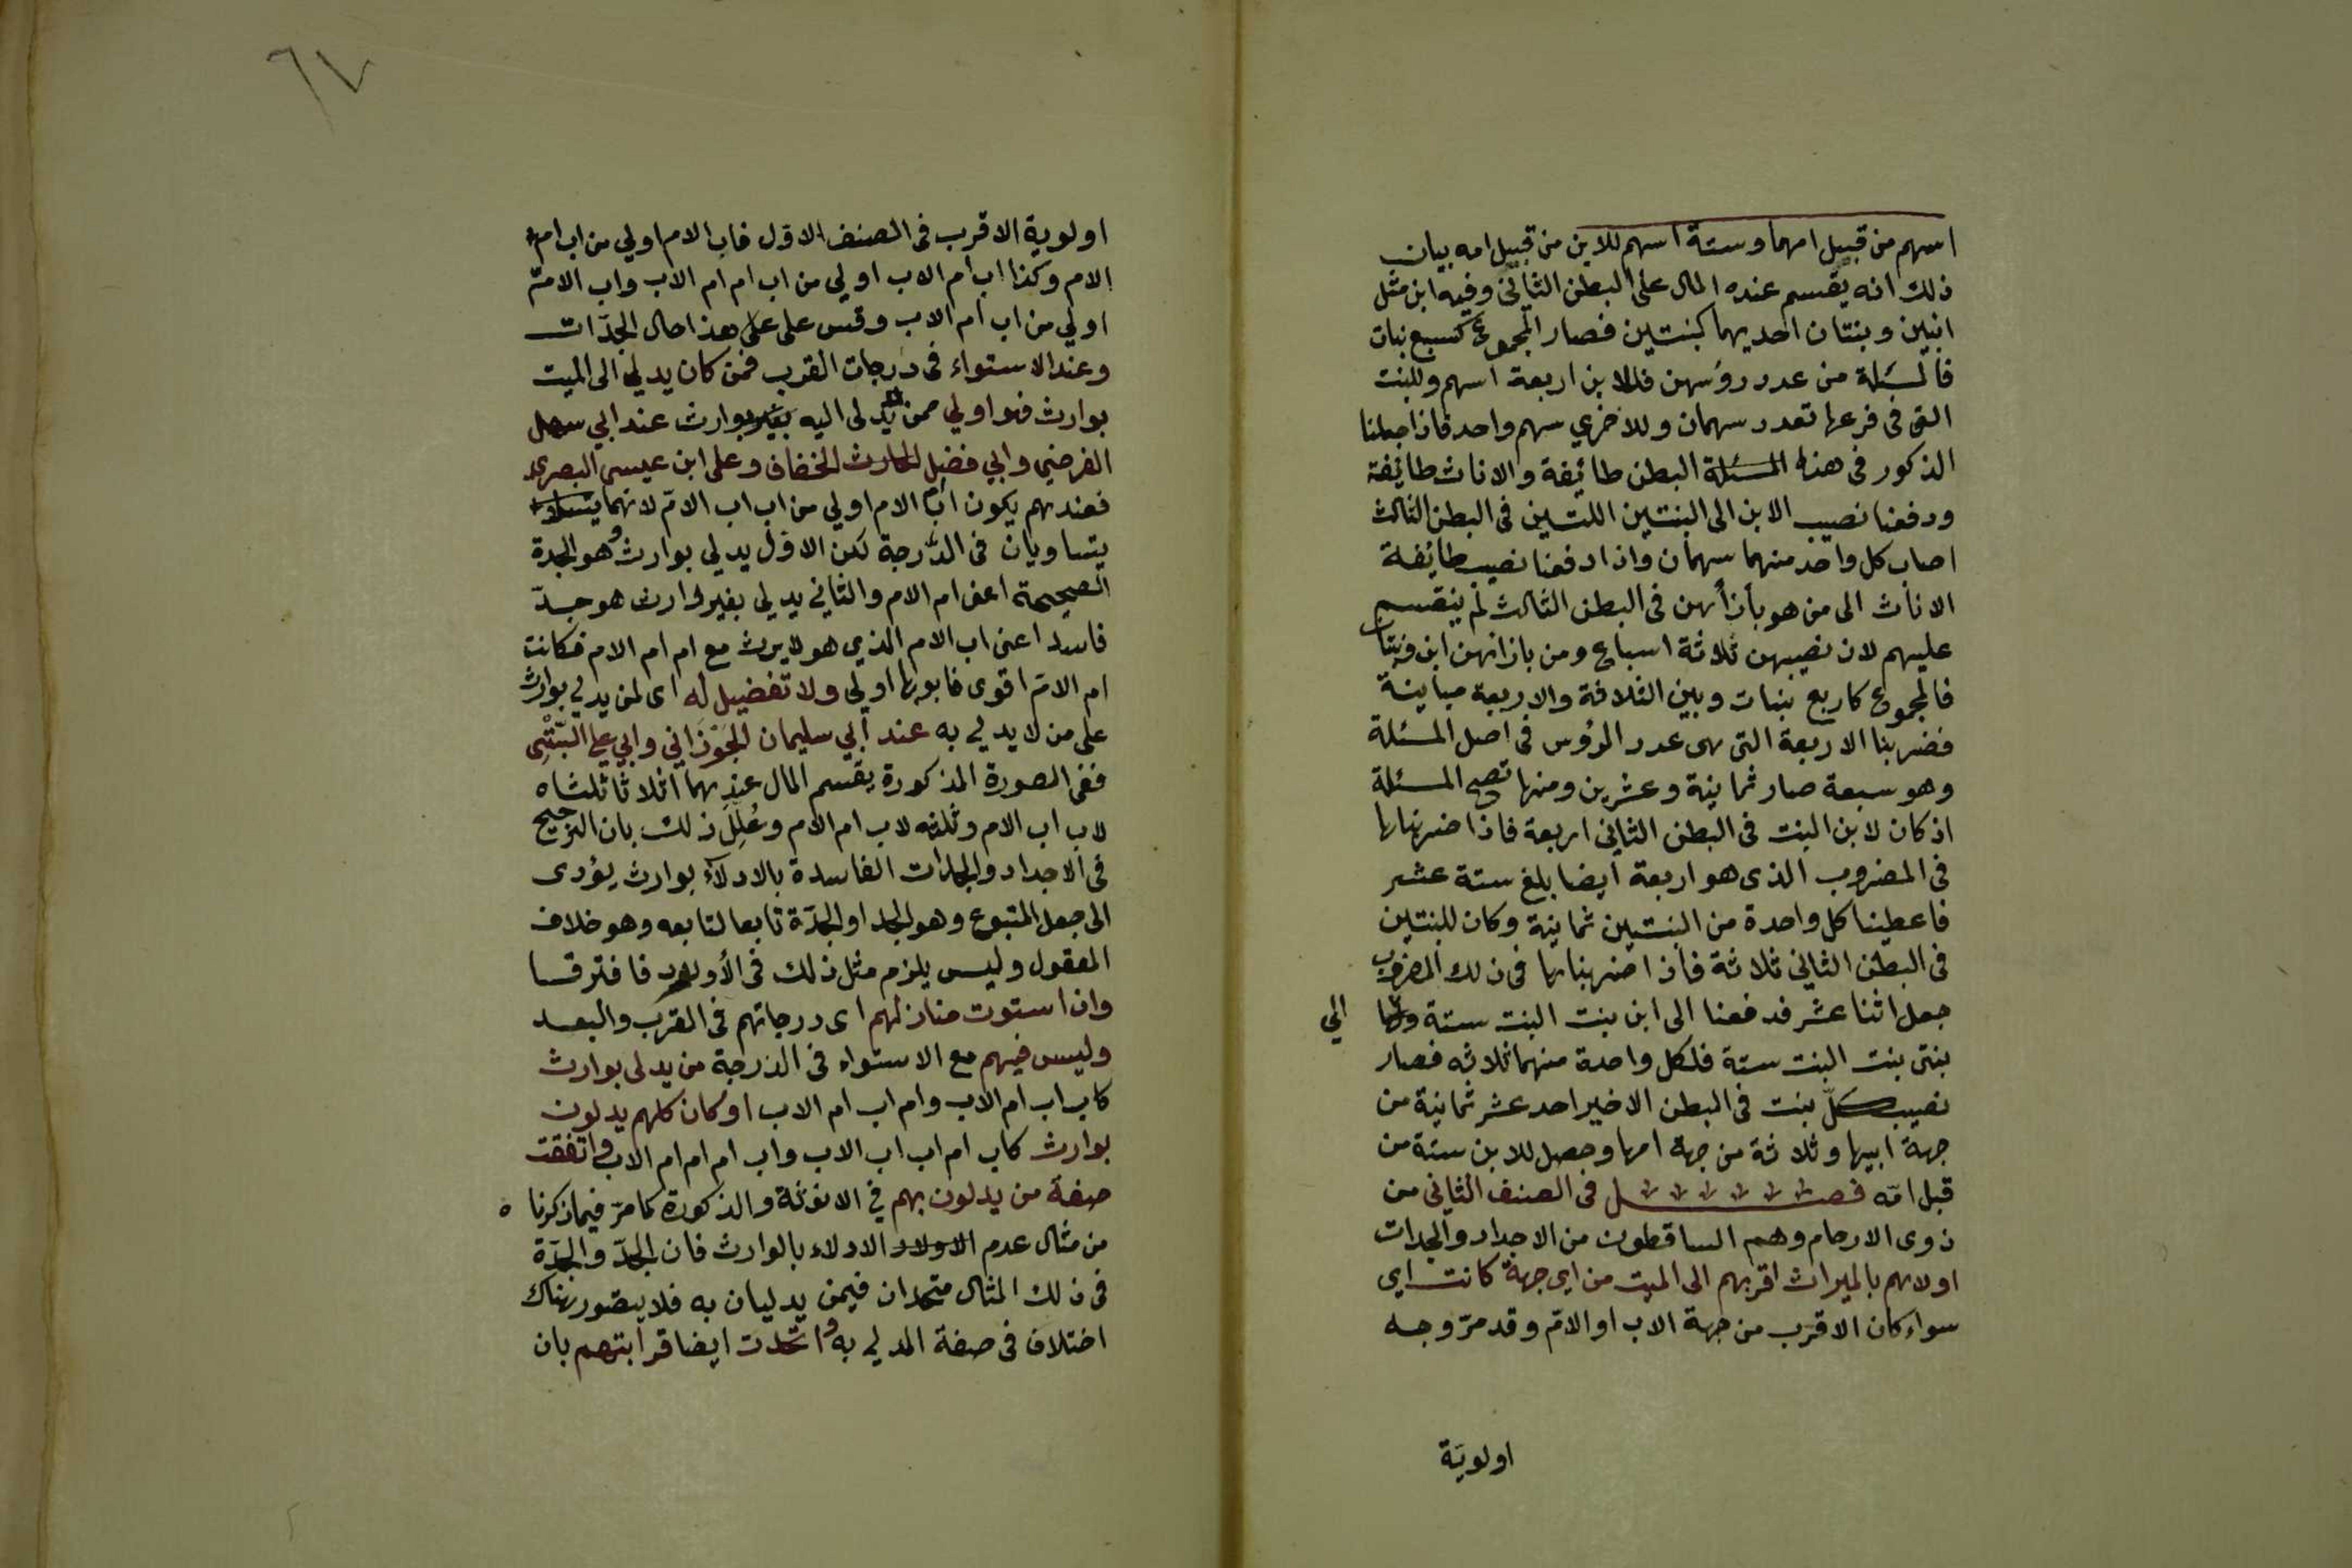 اسهم من قبيل امهما وستة اسهم للابن من قبيل امه بيان
ذلك انه يقسم عنده المال على البطن الثاني وفيه ابن مثل
ابنين وبنتان احديهما كبنتين فصار المجموع كسبع بنات
فالمسئلة من عدد رؤسهن فللابن اربعة اسهم وللبنت
التى فى فرعها تعدد سهمان وللاخري سهم واحد فاذا جعلنا
الذكور فى هذا البطن طائفة والاناث طائفة
ودفعنا نصيب الابن الى البنتين اللتين فى البطن الثالث
اصاب كل واحد منهما سهمان واذا دفعنا نصيب طائفة
الاناث الى من هو بأزائهن فى البطن الثالث لم ينقسم
عليهم لان نصيبهن ثلاثة اسباع ومن بازائهن ابن وبنتا
فالمجموع كاربع بنات وبين الثلاثة والاربعة مباينة
فضربنا الاربعة التى هى عدد الرؤس فى اصل المسئلة
وهو سبعة صار ثمانية وعشرين ومنها تصح المسئلة
اذ كان لابن البنت فى البطن الثاني اربعة فاذا ضربناها
فى المضروب الذى هو اربعة ايضا بلغ ستة عشر
فاعطينا كل واحدة من البنتين ثمانية وكان للبنتين
فى البطن الثاني ثلاثة فاذا ضربناها فى ذلك المضروب
جعل اثنا عشر فدفعنا الى ابن بنت البنت ستة و الي
بنتى بنت البنت ستة فلكل واحدة منهما ثلاثه فصار
نصيب كلّ بنت فى البطن الاخير احد عشر ثمانية من
جهة ابيها وثلاثة من جهة امها وحصل للابن ستة من
قبل امّه فصل فى الصنف الثانى من
ذوى الارحام وهم الساقطون من الاجداد والجدات
اولاهم بالميراث اقربهم الى الميت من اي جهة كانت اي
سواء كان الاقرب من جهة الاب او الامّ وقد مرّ وجه
اولوية
٦٧
اولوية الاقرب فى الصنف الاول فاب الام اولي من اب ام
الام وكذا اب ام الاب اولي من اب ام ام الاب واب الامّ
اولي من اب ام الاب وقس على على هذا حال الجدّات
وعند الاستواء فى درجات القرب فمن كان يدلي الى الميت
بوارث فهو اولي ممن يدلى اليه بغير وارث عند ابي سهل
الفرضي وابي فضل الحارث الخفاف وعلى ابن عيسى البصري
فعندهم يكون اب ام الام اولي من اب اب الامّ لانهما
يتساويان فى الدرجة لكن الاول يدلي بوارث وهو الجدة
الصحيحة اعنى ام الام والثاني يدلي بغير وارث هو جدّ
فاسد اعنى اب الام الذي هو لا يرث مع ام ام الام فكانت
ام الامّ اقوى فابوها اولي ولا تفضيل له اى لمن يدلي بوارث
على من لا يدلي به عند ابي سليمان الجَوْزَاني وابي علي البَتّنِى
ففى الصورة المذكورة يقسم المال عندهما اثلاثا ثلثاه
لاب اب الام وثلثه لاب ام الام وعُلِّلَ ذلك بان الترجيح
فى الاجداد والجدات الفاسدة بالادلآء بوارث يؤدى
الى جعل المتبوع وهو الجد او الجدّة تابعا لتابعه وهو خلاف
المعقول وليس يلزم مثل ذلك فى الأولاد فافترقا
وان استوت منازلهم اى درجاتهم فى القرب والبعد
وليس فيهم مع الاستواء فى الدرجة من يدلى بوارث
كاب اب ام الاب وام اب ام الاب او كان كلهم يدلون
بوارث كاب ام اب اب الاب واب ام ام ام الاب واتفقت
صفة من يدلون بهم في الانوثة والذكورة كما مرّ فيما ذكرنا ه
من مثال عدم الاولاد الادلاء بالوارث فان الجدّ والجدّة
فى ذلك المثال متحدان فيمن يدليان به فلا يتصور هناك
اختلاف فى صفة المدلي به واتحدت ايضا قرابتهم بان